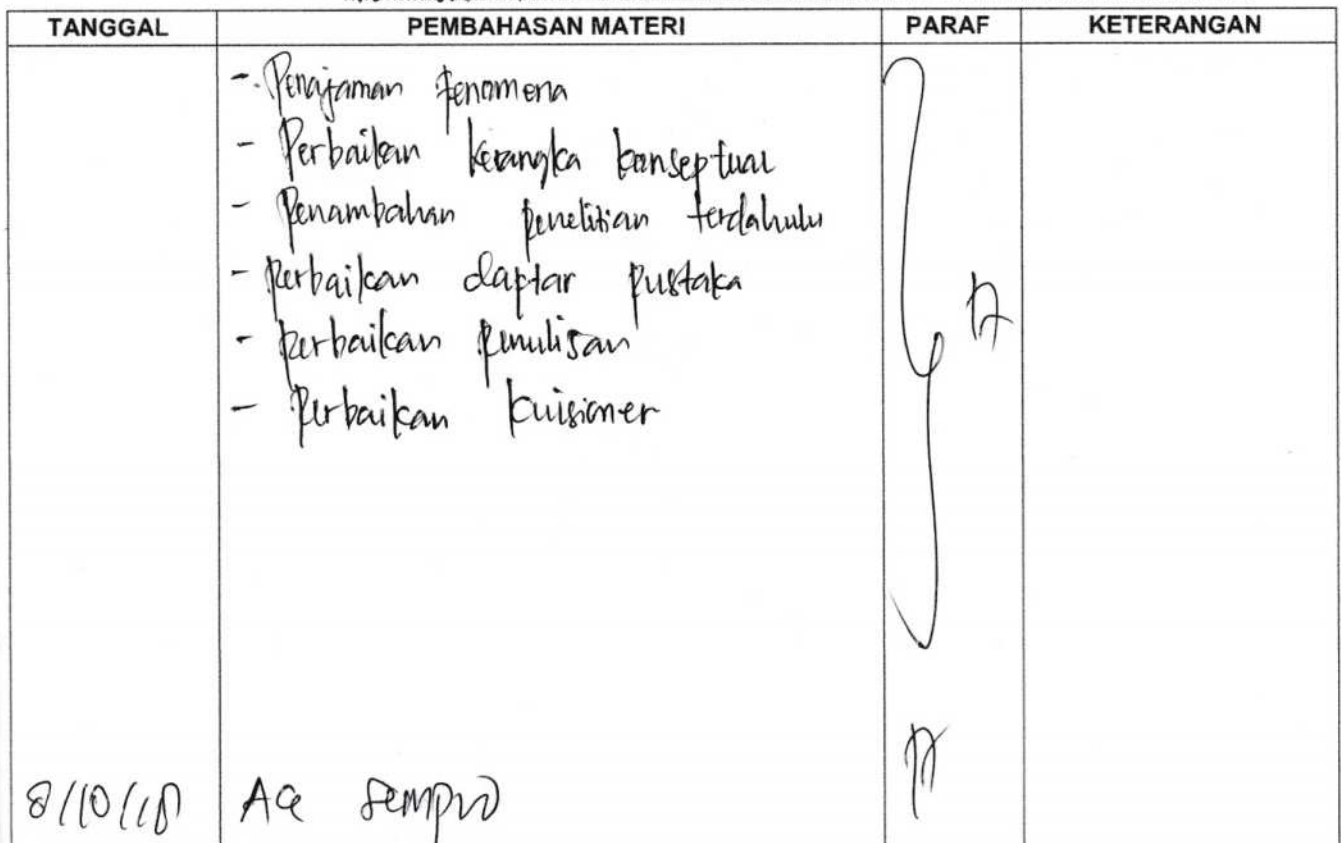 TANGGAL PEMBAHASAN MATERI PARAF KETERANGAN
- Penajaman fenomena
- Perbaikan kerangka konseptual
- Penambahan penelitian terdahulu
- perbaikan daptar pustaka
- perbaikan penulisan
- Perbaikan kuisioner
8/10/18 Acc Sempro